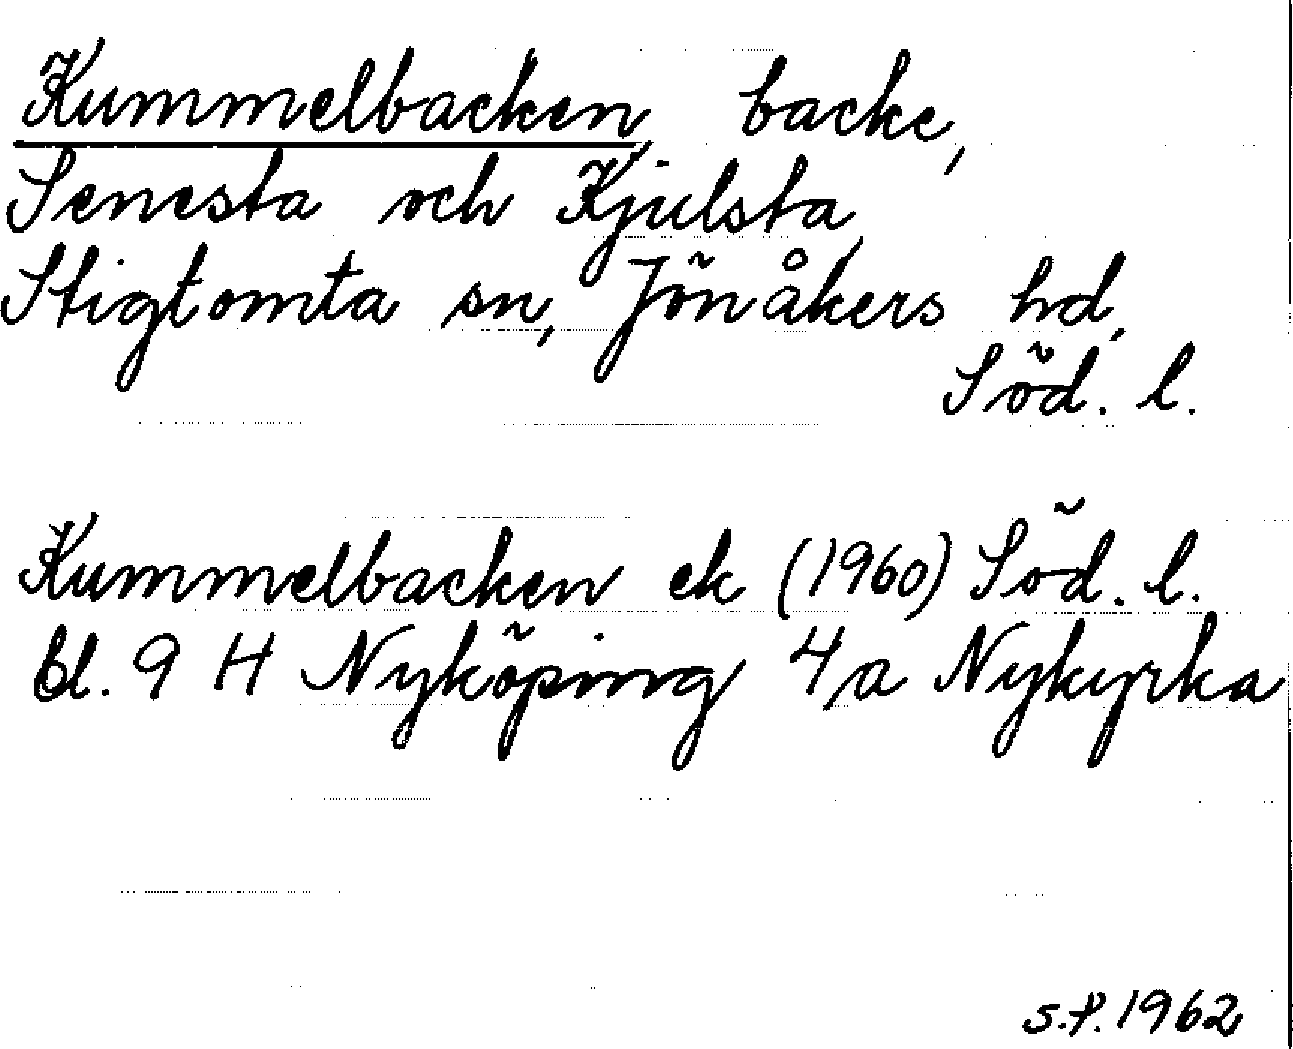 Kummelbacken, backe,
Senesta och Kjulsta,
Stigtomta sn, Jönåkers hd,
Söd. l.
Kummelbacken ek (1960) Söd. l.
bl. 9 H Nyköping 4a Nykyrka
s.P. 1962